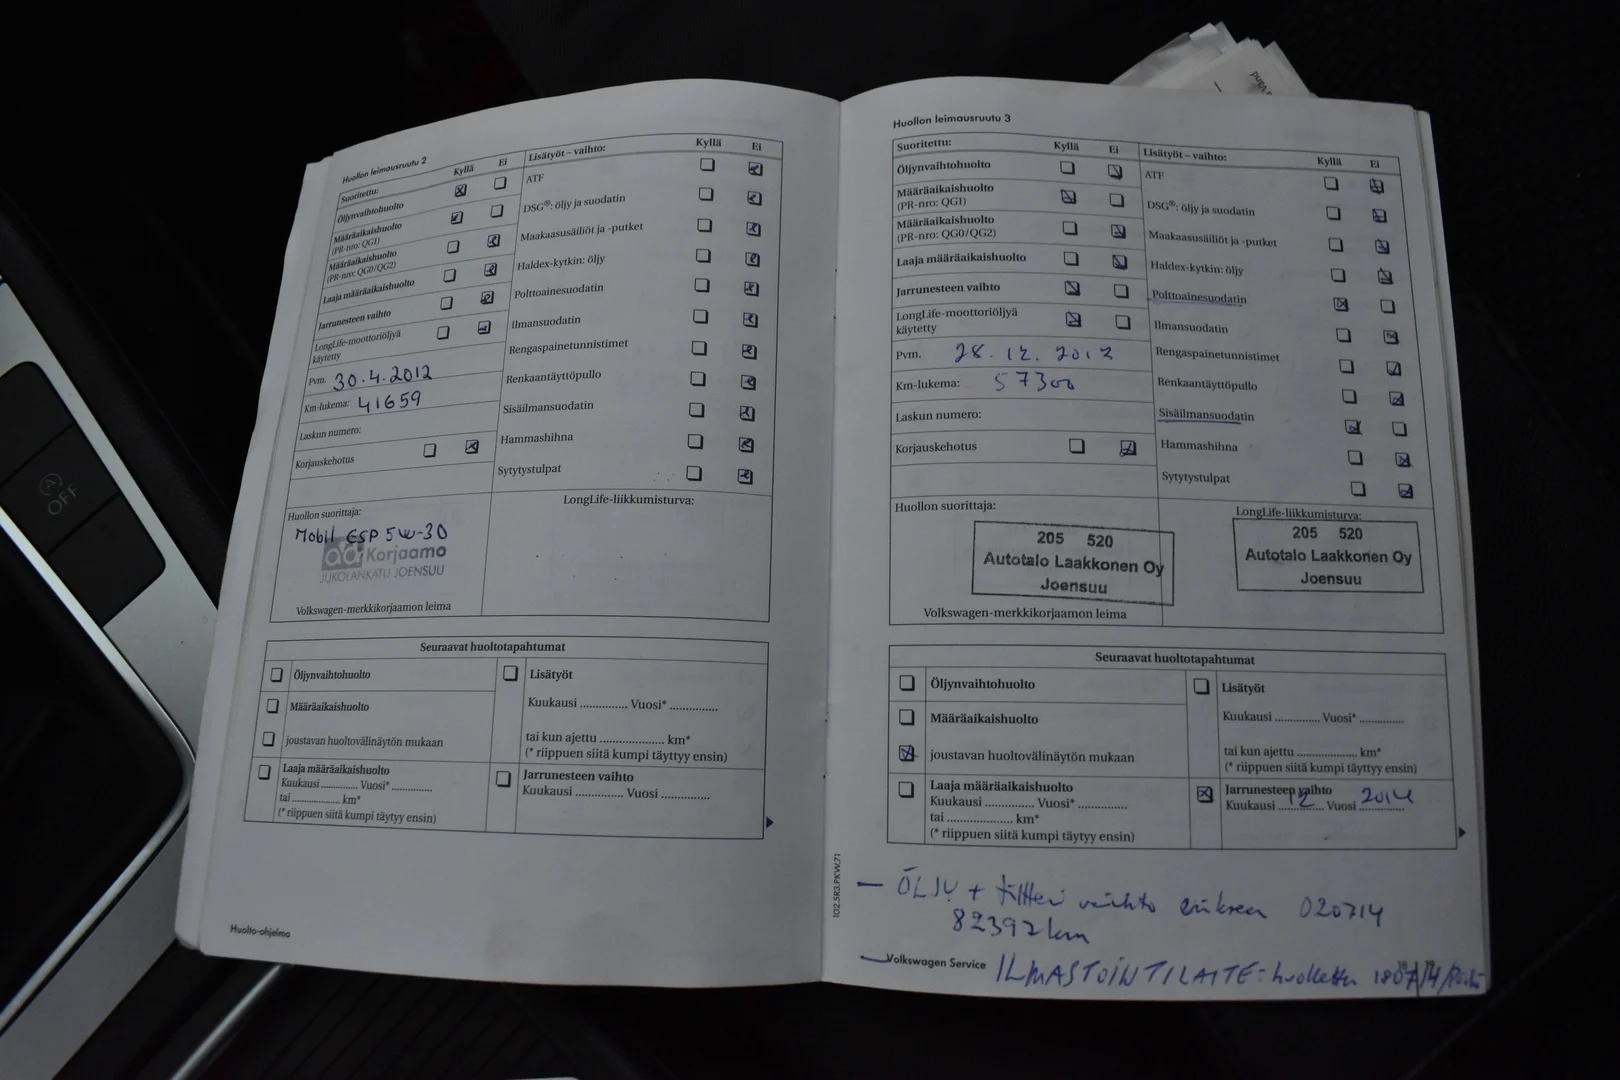 Huollon leimausruutu 2
Suoritettu: Kyllä Ei
Öljynvaihtohuolto
Määräaikaishuolto
(PR-nro: QG1)
Määräaikaishuolto
(PR-nro: QG0/QG2)
Laaja määräaikaishuolto
Jarrunesteen vaihto
LongLife-moottoriöljyä
käytetty
Pvm. 30.4.2012
Km-lukema: 41659
Laskun numero:
Korjauskehotus
Lisätyöt – vaihto: Kyllä Ei
ATF
DSG®: öljy ja suodatin
Maakaasusäiliöt ja -putket
Haldex-kytkin: öljy
Polttoainesuodatin
Ilmansuodatin
Rengaspainetunnistimet
Renkaantäyttöpullo
Sisäilmansuodatin
Hammashihna
Sytytystulpat
Huollon suorittaja:
Mobil ESP 5W-30
ad Korjaamo
JUKOLANKATU JOENSUU
Volkswagen-merkkikorjaamon leima
LongLife-liikkumisturva:
Seuraavat huoltotapahtumat
Öljynvaihtohuolto
Määräaikaishuolto
joustavan huoltovälinäytön mukaan
Laaja määräaikaishuolto
Kuukausi ............ Vuosi* .............
tai ................ km*
(* riippuen siitä kumpi täytyy ensin)
Lisätyöt
Kuukausi ............... Vuosi* ...............
tai kun ajettu .................... km*
(* riippuen siitä kumpi täyttyy ensin)
Jarrunesteen vaihto
Kuukausi ............... Vuosi ...............
Huolto-ohjelma
Huollon leimausruutu 3
Suoritettu: Kyllä Ei
Öljynvaihtohuolto
Määräaikaishuolto
(PR-nro: QG1)
Määräaikaishuolto
(PR-nro: QG0/QG2)
Laaja määräaikaishuolto
Jarrunesteen vaihto
LongLife-moottoriöljyä
käytetty
Pvm. 28.12.2012
Km-lukema: 57300
Laskun numero:
Korjauskehotus
Lisätyöt – vaihto: Kyllä Ei
ATF
DSG®: öljy ja suodatin
Maakaasusäiliöt ja -putket
Haldex-kytkin: öljy
Polttoainesuodatin
Ilmansuodatin
Rengaspainetunnistimet
Renkaantäyttöpullo
Sisäilmansuodatin
Hammashihna
Sytytystulpat
Huollon suorittaja:
205 520
Autotalo Laakkonen Oy
Joensuu
Volkswagen-merkkikorjaamon leima
LongLife-liikkumisturva:
205 520
Autotalo Laakkonen Oy
Joensuu
Seuraavat huoltotapahtumat
Öljynvaihtohuolto
Määräaikaishuolto
joustavan huoltovälinäytön mukaan
Laaja määräaikaishuolto
Kuukausi ............... Vuosi* ...............
tai .................... km*
(* riippuen siitä kumpi täytyy ensin)
Lisätyöt
Kuukausi .............. Vuosi* ..............
tai kun ajettu .................. km*
(* riippuen siitä kumpi täyttyy ensin)
Jarrunesteen vaihto
Kuukausi 12 Vuosi 2014
102.5R3.PKW.71
— ÖLJY + filtteri vaihto 020714
82392 km
Volkswagen Service
ILMASTOINTILAITE: huollettu 1807/14
OFF